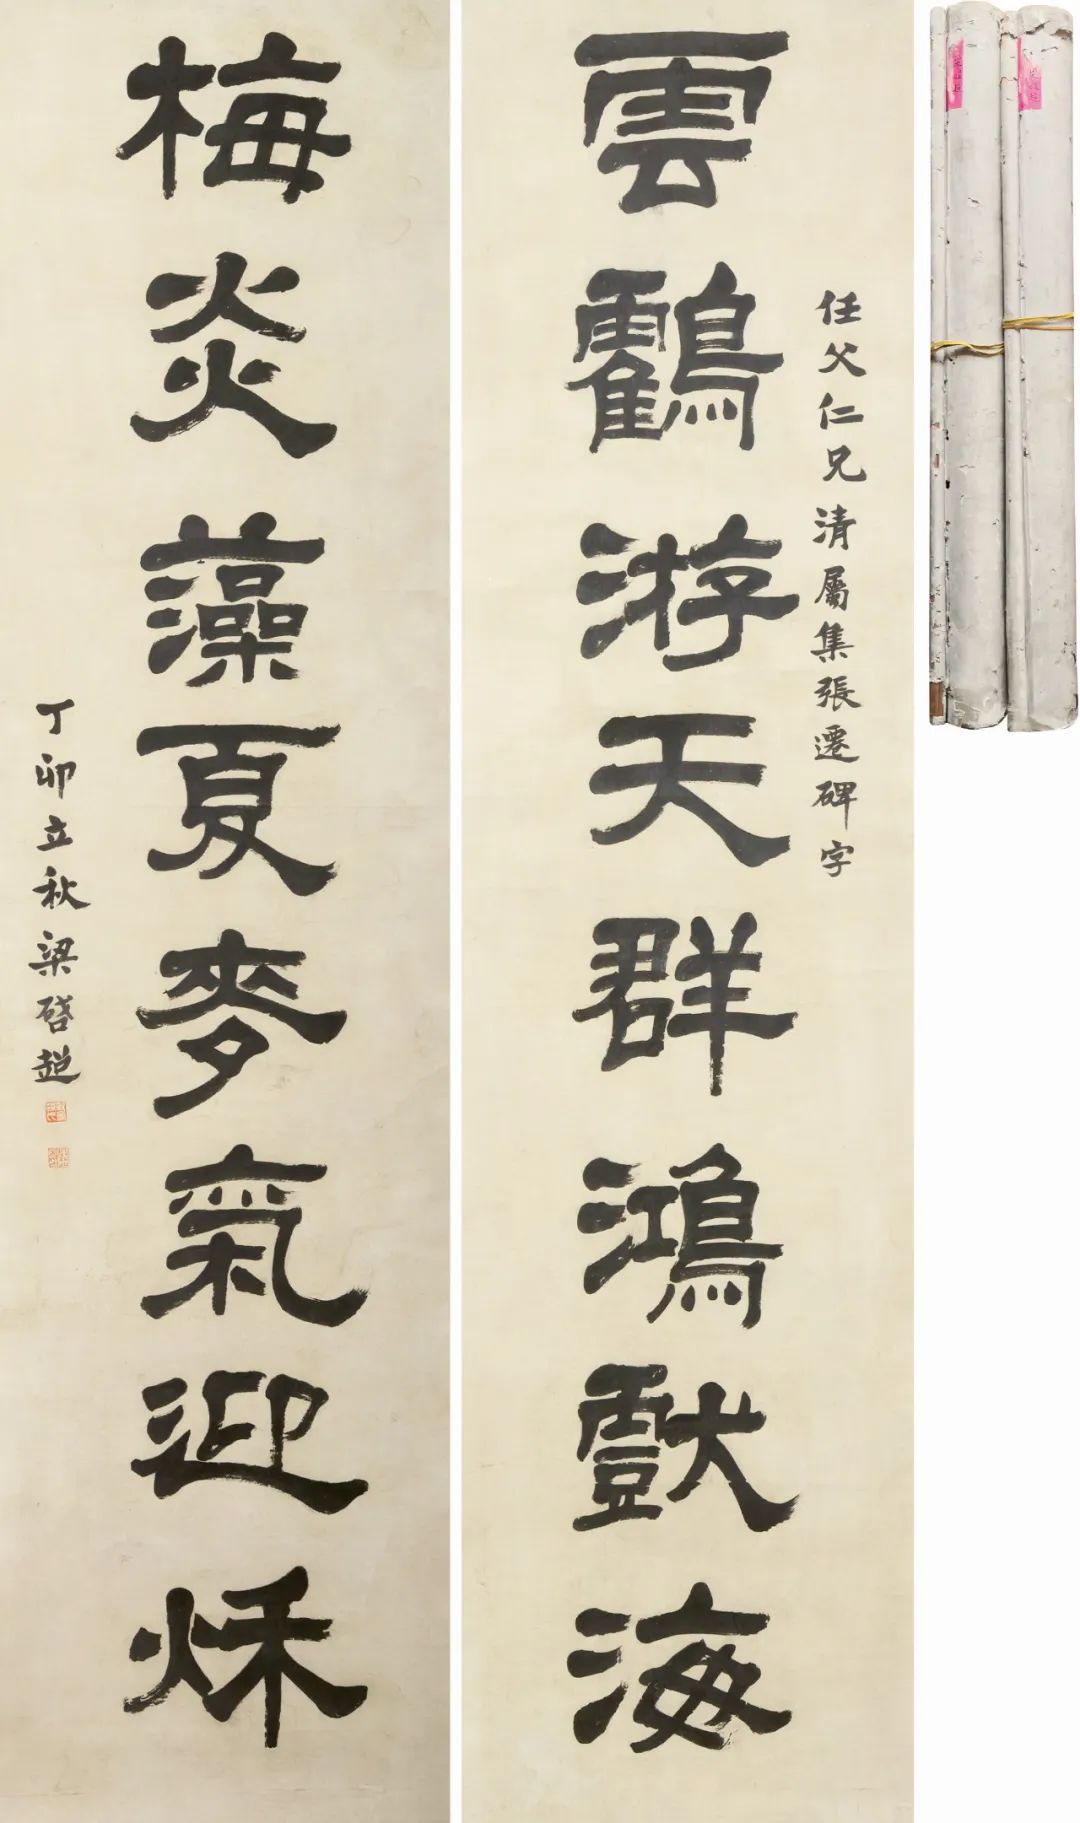 雲鸖游天群鴻戲海
任父仁兄清屬集張遷碑字
梅炎藻夏麥氣迎秌
丁卯立秋梁啓超